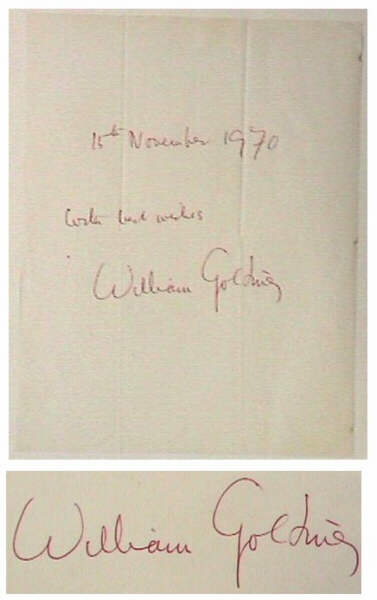 15th November 1970
With best wishes
William Golding
William Golding